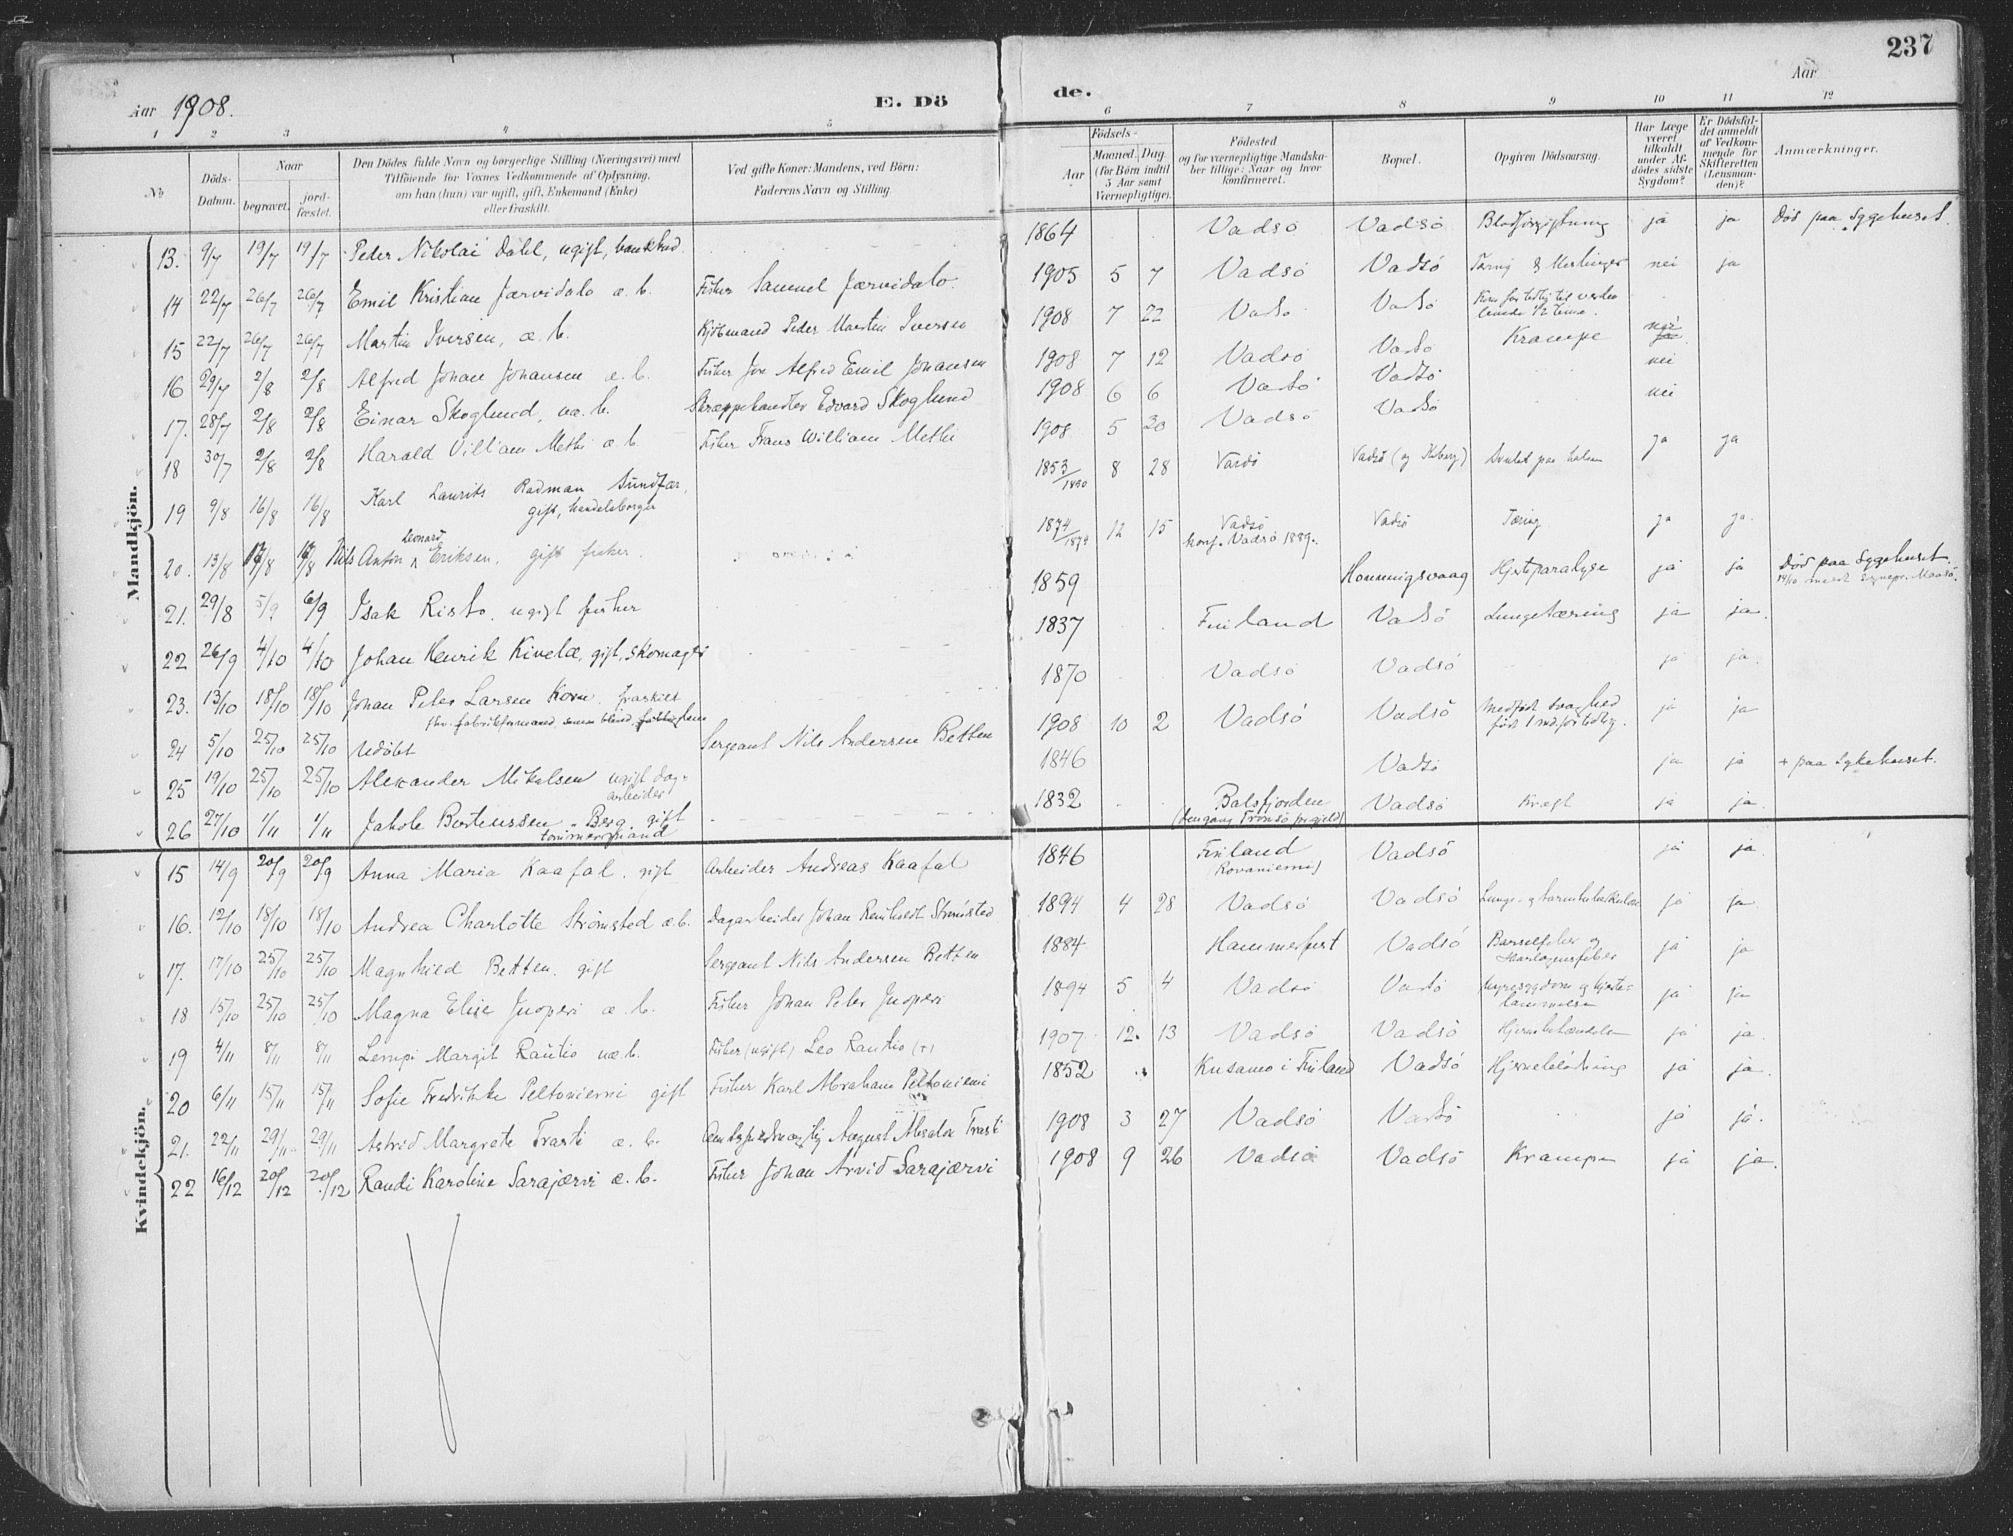 237
Aar 1908.
E. Dö
de.
Aar
1 2 3 4 5
6 7 8 9 10 11 12
No
Döds-Datum.
Naar
begravet.
jord-fæstet.
Den Dödes fulde Navn og borgerlige Stilling (Næringsvei) med
Tilföiende for Voxnes Vedkommende af Oplysning,
om han (hun) var ugift, gift, Enkemand (Enke)
eller fraskilt.
Ved gifte Koner: Mandens, ved Börn:
Faderens Navn og Stilling.
Födsels-
Aar
Maaned. Dag.
(for Börn indtil
5 Aar samt
Værnepligtige).
Födested
og for værnepligtige Mandska-
ber tillige: Naar og hvor
konfirmeret.
Bopæl.
Opgiven Dödsaarsag.
Har Læge
været
tilkaldt
under Af-
dödes sidste
Sygdom?
Er Dödsfal-
det anmeldt
af Vedkom-
mende for
Skifteretten
(Lensman-
den)?
Anmærkninger.
Mandkjön.
13. 9/7 19/7 19/7 Peder Nikolai Dahl, ugift, 1864 Vadsö Vadsö Blodforgiftning ja ja Död paa Sygehuset.
14 22/7 26/7 26/7 Emil Kristian Jærvidalo æ. b. Fisker Samuel Jærvidalo. 1905 5 7 Vadsö Vadsö Tæring & Meslinger nei ja
15 22/7 26/7 26/7 Martin Iversen, æ. b. Kjöbmand Peder Martin Iversen 1908 7 22 Vadsö Vadsö Kom for tidlig til verden
16 29/7 2/8 2/8 Alfred Johan Johansen æ. b. Fisker Jon Alfred Emil Johansen 1908 7 12 Vadsö Vadsö Krampe nei
17. 28/7 2/8 2/8 Einar Skoglund, uæ. b. Skræppehandler Edvard Skoglund 1908 6 6 Vadsö Vadsö nei
18 30/7 2/8 2/8 Harald Villiam Methi æ. b. Fisker Frans William Methi 1908 5 20 Vadsö Vadsö nei
19 9/8 16/8 16/8 Karl Laurits Radman Sundfær,
gift, handelsborger 1853/1890 8 28 Vardö Vadsö (og Kiberg) ja ja
20. 13/8 17/8 17/8 Nils Anton Leonard Eriksen, gift fisker. 1874/1879 12 15 Vadsö
konf. Vadsö 1889. Vadsö Tæring ja ja
21. 29/8 5/9 6/9 Isak Risto, ugift fisker 1859 Honningsvaag Hjerteparalyse ja ja Död paa Sygehuset.
22 26/9 4/10 4/10 Johan Henrik Kivelæ, gift, skomager 1837 Finland Vadsö Lungetæring ja ja
23. 13/10 18/10 18/10 Johan Peter Larsen Korn, fraskilt 1870 Vadsö Vadsö ja ja
24 5/10 25/10 25/10 Udöbt Sergeant Nils Andersen Betten 1908 10 2 Vadsö Vadsö Medfödt svaghed
född 1 md. for tidlig. ja ja
25 19/10 25/10 25/10 Alexander Mikalsen ugift dag-
arbeider 1846 Vadsö ja ja + paa Sykehuset.
26 27/10 1/11 1/11 Jakob Bertinussen Berg gift
tömmermand 1832 Balsfjorden
(dengang Tromsö prgjeld) Vadsö Kræft ja ja.
Kvindekjön.
15 14/9 20/9 20/9 Anna Maria Kaafal, gift Arbeider Andreas Kaafal 1846 Finland
(Rovaniemi) Vadsö ja ja
16. 12/10 18/10 18/10 Andrea Charlotte Strömsted æ. b. Dagarbeider Johan Reinholdt Strömsted 1894 4 28 Vadsö Vadsö Lunge- og tarmtuberkulose ja ja
17. 17/10 25/10 25/10 Magnhild Betten, gift Sergeant Nils Andersen Betten 1884 Hammerfest Vadsö Barselfeber og
Skarlagensfeber ja ja
18 15/10 25/10 25/10 Magna Elise Juoperi æ. b. Fisker Johan Peter Juoperi 1894 5 4 Vadsö Vadsö Nyresygdom og hjerte-
lammelse ja ja
19 4/11 8/11 8/11 Lempi Margit Rautio uæ b. Fisker (ugift) Leo Rautio (+) 1907 12. 13 Vadsö Vadsö ja ja
20 6/11 15/11 15/11 Sofie Fredrikke Peltoniemi gift Fisker Karl Abraham Peltoniemi 1852 Kusamo i Finland Vadsö Hjerneblödning ja ja
21. 22/11 29/11 29/11 Astrid Margrete Trasti æ. b. August Absalon Trasti 1908 3 27 Vadsö Vadsö ja ja.
22 16/12 20/12 20/12 Randi Karoline Sarajærvi æ. b. Fisker Johan Arvid Sarajærvi 1908 9 26 Vadsö Vadsö Krampe ja ja.